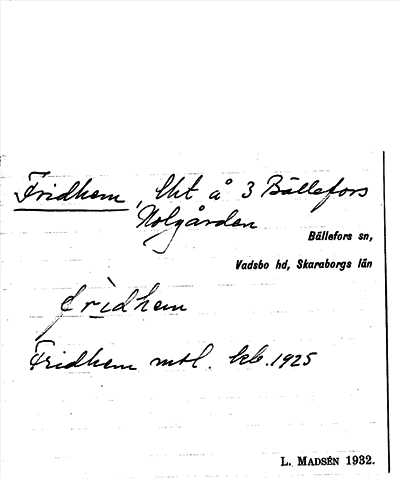 Fridhem, lht å 3 Bällefors
Nolgården
Bällefors sn,
Vadsbo hd, Skaraborgs län
frìdhem
Fridhem mtl. kb. 1925
L. MADSÉN 1932.